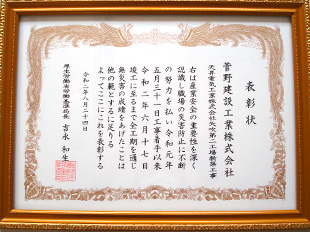 表彰状
菅野建設工業株式会社
天昇電気工業株式会社矢吹第二工場新築工事
右は産業安全の重要性を深く
認識し職場の災害防止に不断
の努力を払い令和元年
五月三十一日工事着手以来
令和二年六月十七日
竣工に至るまで全工期を通じ
無災害の成績をあげたことは
他の範とするに足りる
よってここにこれを表彰する
令和二年八月二十四日
厚生労働省労働基準局長
吉永和生